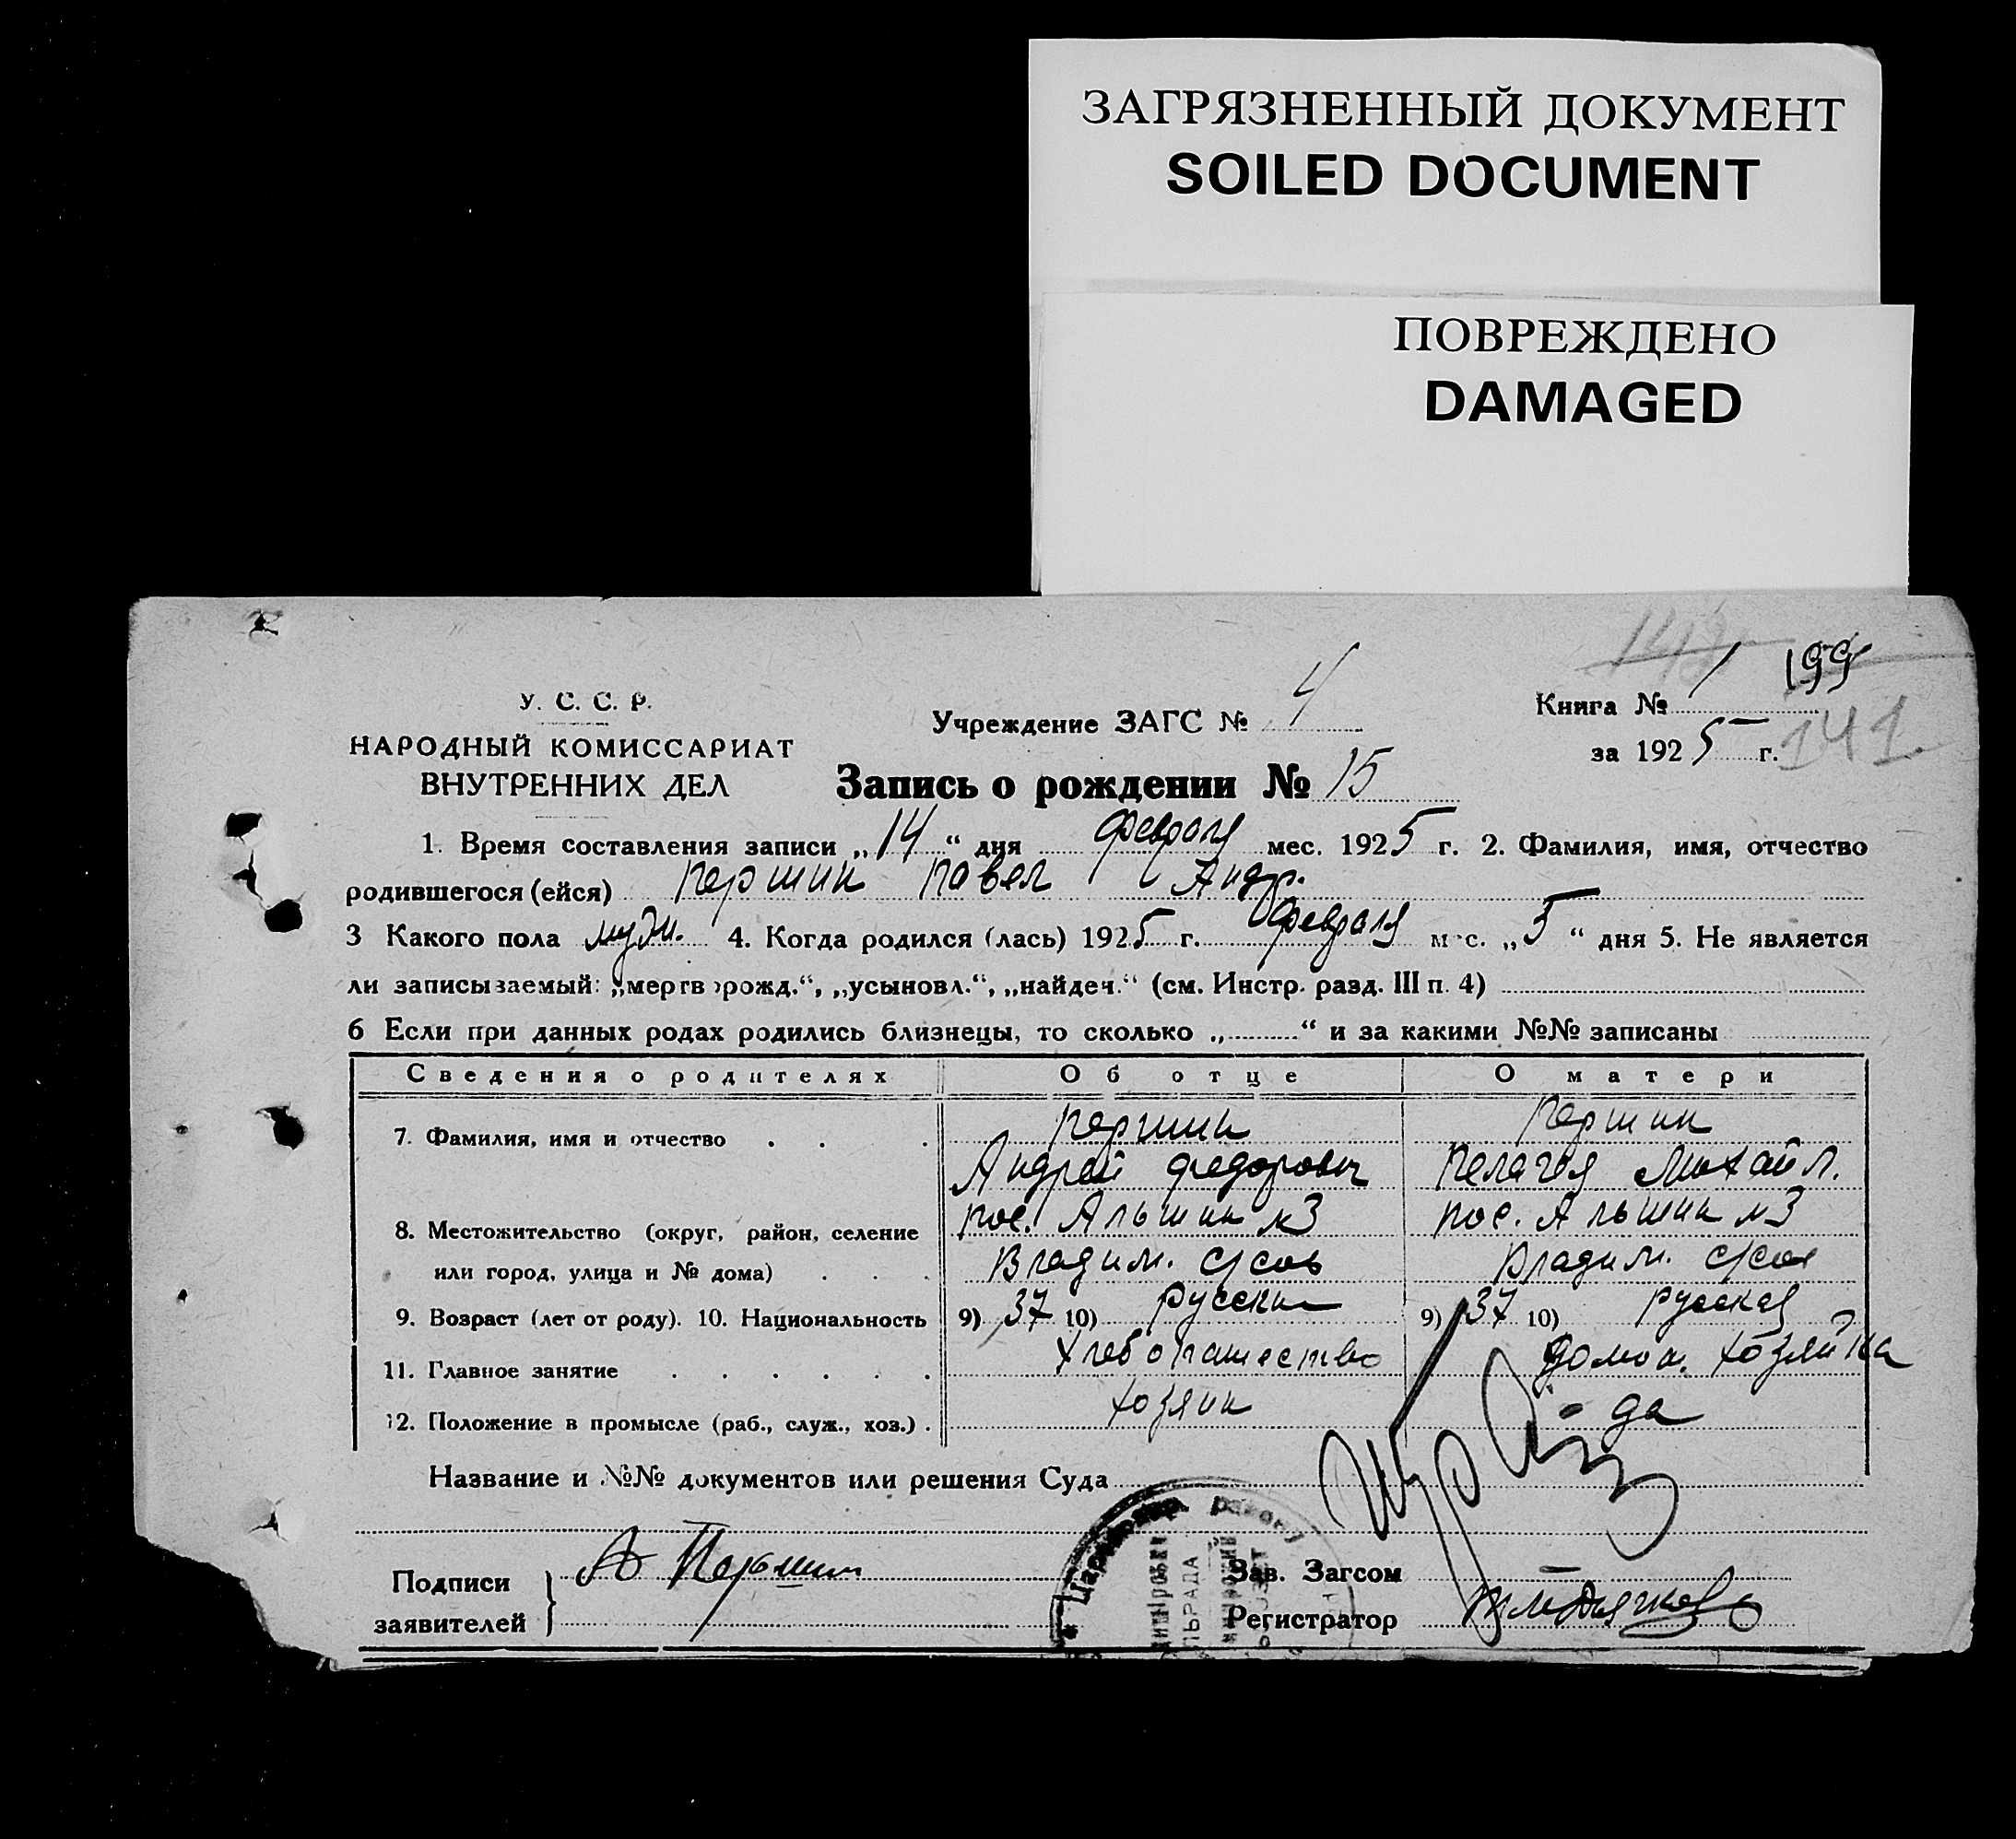 ЗАГРЯЗНЕННЫЙ ДОКУМЕНТ
SOILED DOCUMENT
ПОВРЕЖДЕНО
DAMAGED
У. С. С. Р.
НАРОДНЫЙ КОМИССАРИАТ
ВНУТРЕННИХ ДЕЛ
Учреждение ЗАГС № 4
Книга № 1 199
за 1925 г. 141
Запись о рождении № 15
1. Время составления записи „14“ дня февраля мес. 1925 г. 2. Фамилия, имя, отчество
родившегося (ейся) Першин Павел Андр.
3 Какого пола мужм. 4. Когда родился (лась) 1925 г. февраля мес. „5“ дня 5. Не является
ли записываемый: „мертворожд.“, „усыновл.“, „найдеч.“ (см. Инстр. разд. III п. 4)
6 Если при данных родах родились близнецы, то сколько „..........“ и за какими №№ записаны
Сведения о родителях Об отце О матери
7. Фамилия, имя и отчество Першин Першин
Андрей Федорович Пелагея Михайл.
8. Местожительство (округ, район, селение пос. Альшин №3 пос. Альшин №3
или город, улица и № дома) Владим. с/сов Владим. с/сов
9. Возраст (лет от роду). 10. Национальность 9) 37 10) русский 9) 37 10) русская
11. Главное занятие хлебопашество домаш. хозяйка
12. Положение в промысле (раб., служ., хоз.) хозяин да
Название и №№ документов или решения Суда
Подписи А Першин
заявителей
району
Зав. Загсом
Регистратор